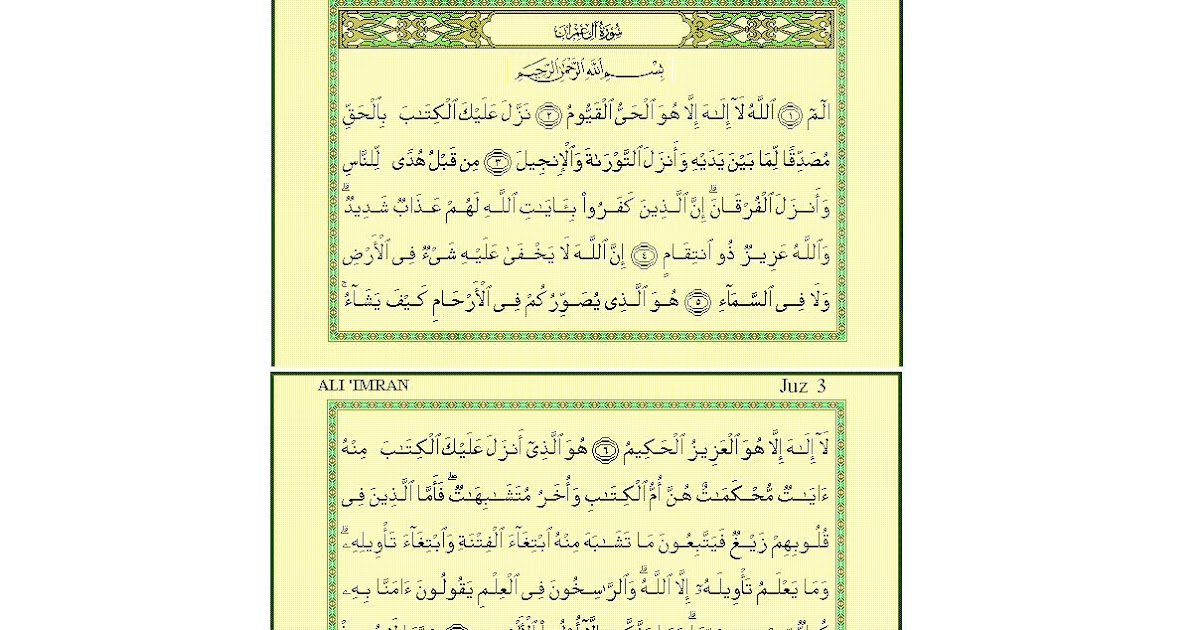 سُورَةُ آلِ عِمْرَانَ
بِسْمِ ٱللَّهِ ٱلرَّحْمَٰنِ ٱلرَّحِيمِ
الٓمٓ ١ ٱللَّهُ لَآ إِلَٰهَ إِلَّا هُوَ ٱلْحَىُّ ٱلْقَيُّومُ ٢ نَزَّلَ عَلَيْكَ ٱلْكِتَٰبَ بِٱلْحَقِّ
مُصَدِّقًا لِّمَا بَيْنَ يَدَيْهِ وَأَنزَلَ ٱلتَّوْرَىٰةَ وَٱلْإِنجِيلَ ٣ مِن قَبْلُ هُدًى لِّلنَّاسِ
وَأَنزَلَ ٱلْفُرْقَانَ ۗ إِنَّ ٱلَّذِينَ كَفَرُوا۟ بِـَٔايَٰتِ ٱللَّهِ لَهُمْ عَذَابٌ شَدِيدٌ ۗ
وَٱللَّهُ عَزِيزٌ ذُو ٱنتِقَامٍ ٤ إِنَّ ٱللَّهَ لَا يَخْفَىٰ عَلَيْهِ شَىْءٌ فِى ٱلْأَرْضِ
وَلَا فِى ٱلسَّمَآءِ ٥ هُوَ ٱلَّذِى يُصَوِّرُكُمْ فِى ٱلْأَرْحَامِ كَيْفَ يَشَآءُ ۚ
ALI 'IMRAN
Juz 3
لَآ إِلَٰهَ إِلَّا هُوَ ٱلْعَزِيزُ ٱلْحَكِيمُ ٦ هُوَ ٱلَّذِىٓ أَنزَلَ عَلَيْكَ ٱلْكِتَٰبَ مِنْهُ
ءَايَٰتٌ مُّحْكَمَٰتٌ هُنَّ أُمُّ ٱلْكِتَٰبِ وَأُخَرُ مُتَشَٰبِهَٰتٌ ۖ فَأَمَّا ٱلَّذِينَ فِى
قُلُوبِهِمْ زَيْغٌ فَيَتَّبِعُونَ مَا تَشَٰبَهَ مِنْهُ ٱبْتِغَآءَ ٱلْفِتْنَةِ وَٱبْتِغَآءَ تَأْوِيلِهِۦ ۗ
وَمَا يَعْلَمُ تَأْوِيلَهُۥٓ إِلَّا ٱللَّهُ ۗ وَٱلرَّٰسِخُونَ فِى ٱلْعِلْمِ يَقُولُونَ ءَامَنَّا بِهِۦ